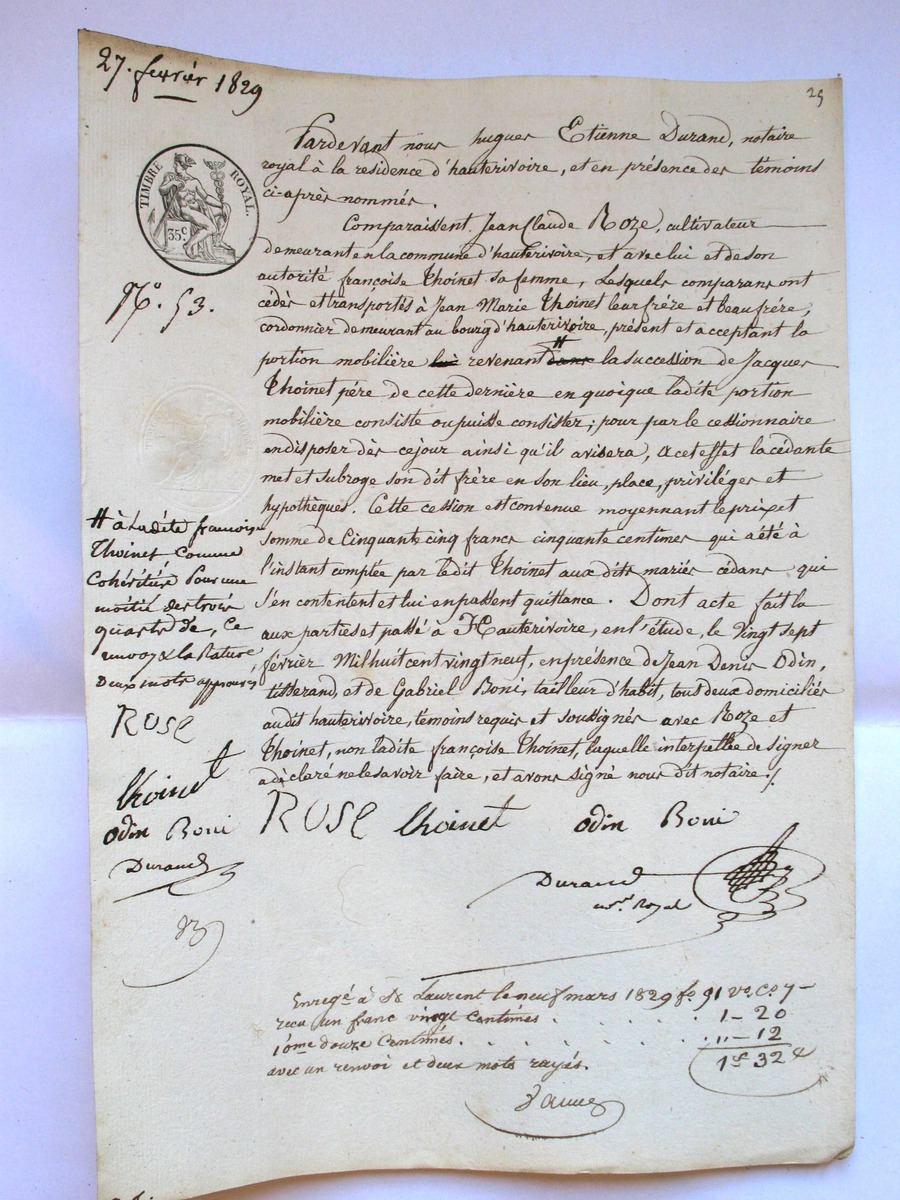 27. février 1829
25
TIMBRE ROYAL.
35.c
N.o 53.
Pardevant nous hugues Etienne Durand, notaire
royal à la residence d'hauterivoire, et en présence des témoins
ci-après nommés.
Comparaissent Jean Claude Roze, cultivateur
demeurant en la commune d'hauterivoire, et avec lui et de son
autorité françoise Thoinet sa femme, Lesquels comparans ont
cédés et transportés à Jean Marie Thoinet leur frére et beau frére,
cordonnier demeurant au bourg d'hauterivoire, présent et acceptant la
portion mobilière lui revenant # dans la succession de Jacques
Thoinet pére de cette dernière en quoique ladite portion
mobilière consiste ou puisse consister; pour par le cessionnaire
en disposer dès ce jour ainsi qu'il avisera, acet effet la cédante
met et subroge son dit frère en son lieu, place, priviléges et
hypothèques. Cette cession est convenue moyennant le prix et
somme de Cinquante cinq francs cinquante centimes qui a été à
l'instant comptée par ledit Thoinet aux dits mariés cédans qui
s'en contentent et lui en passent quittance. Dont acte fait la
aux parties et passé à Hauterivoire, en l'étude, le vingt sept
février Mil huit cent vingt neuf, en présence de Jean Denis Odin,
tisserand, et de Gabriel Boni, tailleur d'habit, tous deux domiciliés
audit hauterivoire, témoins requis et soussignés avec Roze et
Thoinet, non ladite françoise Thoinet, laquelle interpellée de signer
a déclaré ne le savoir faire, et avons signé nous dit notaire./.
# à Ladite francoise
Thoinet comme
Cohéritière Pour une
moitié des trois
quarts de, Ce
envoy & la Rature
Deux mots approuvés
ROSE
thoinet
odin Boni
Durand
ROSE thoinet odin Boni
Durand
not. Royal
Enregé à St Laurent le neuf mars 1829 fo 91 Vo. Co. 7
recu un franc vingt Centimes . . . . . 1-20
10me douze Centimes . . . . . . . " - 12
avec un renvoi et deux mots rayés. 1f 32c